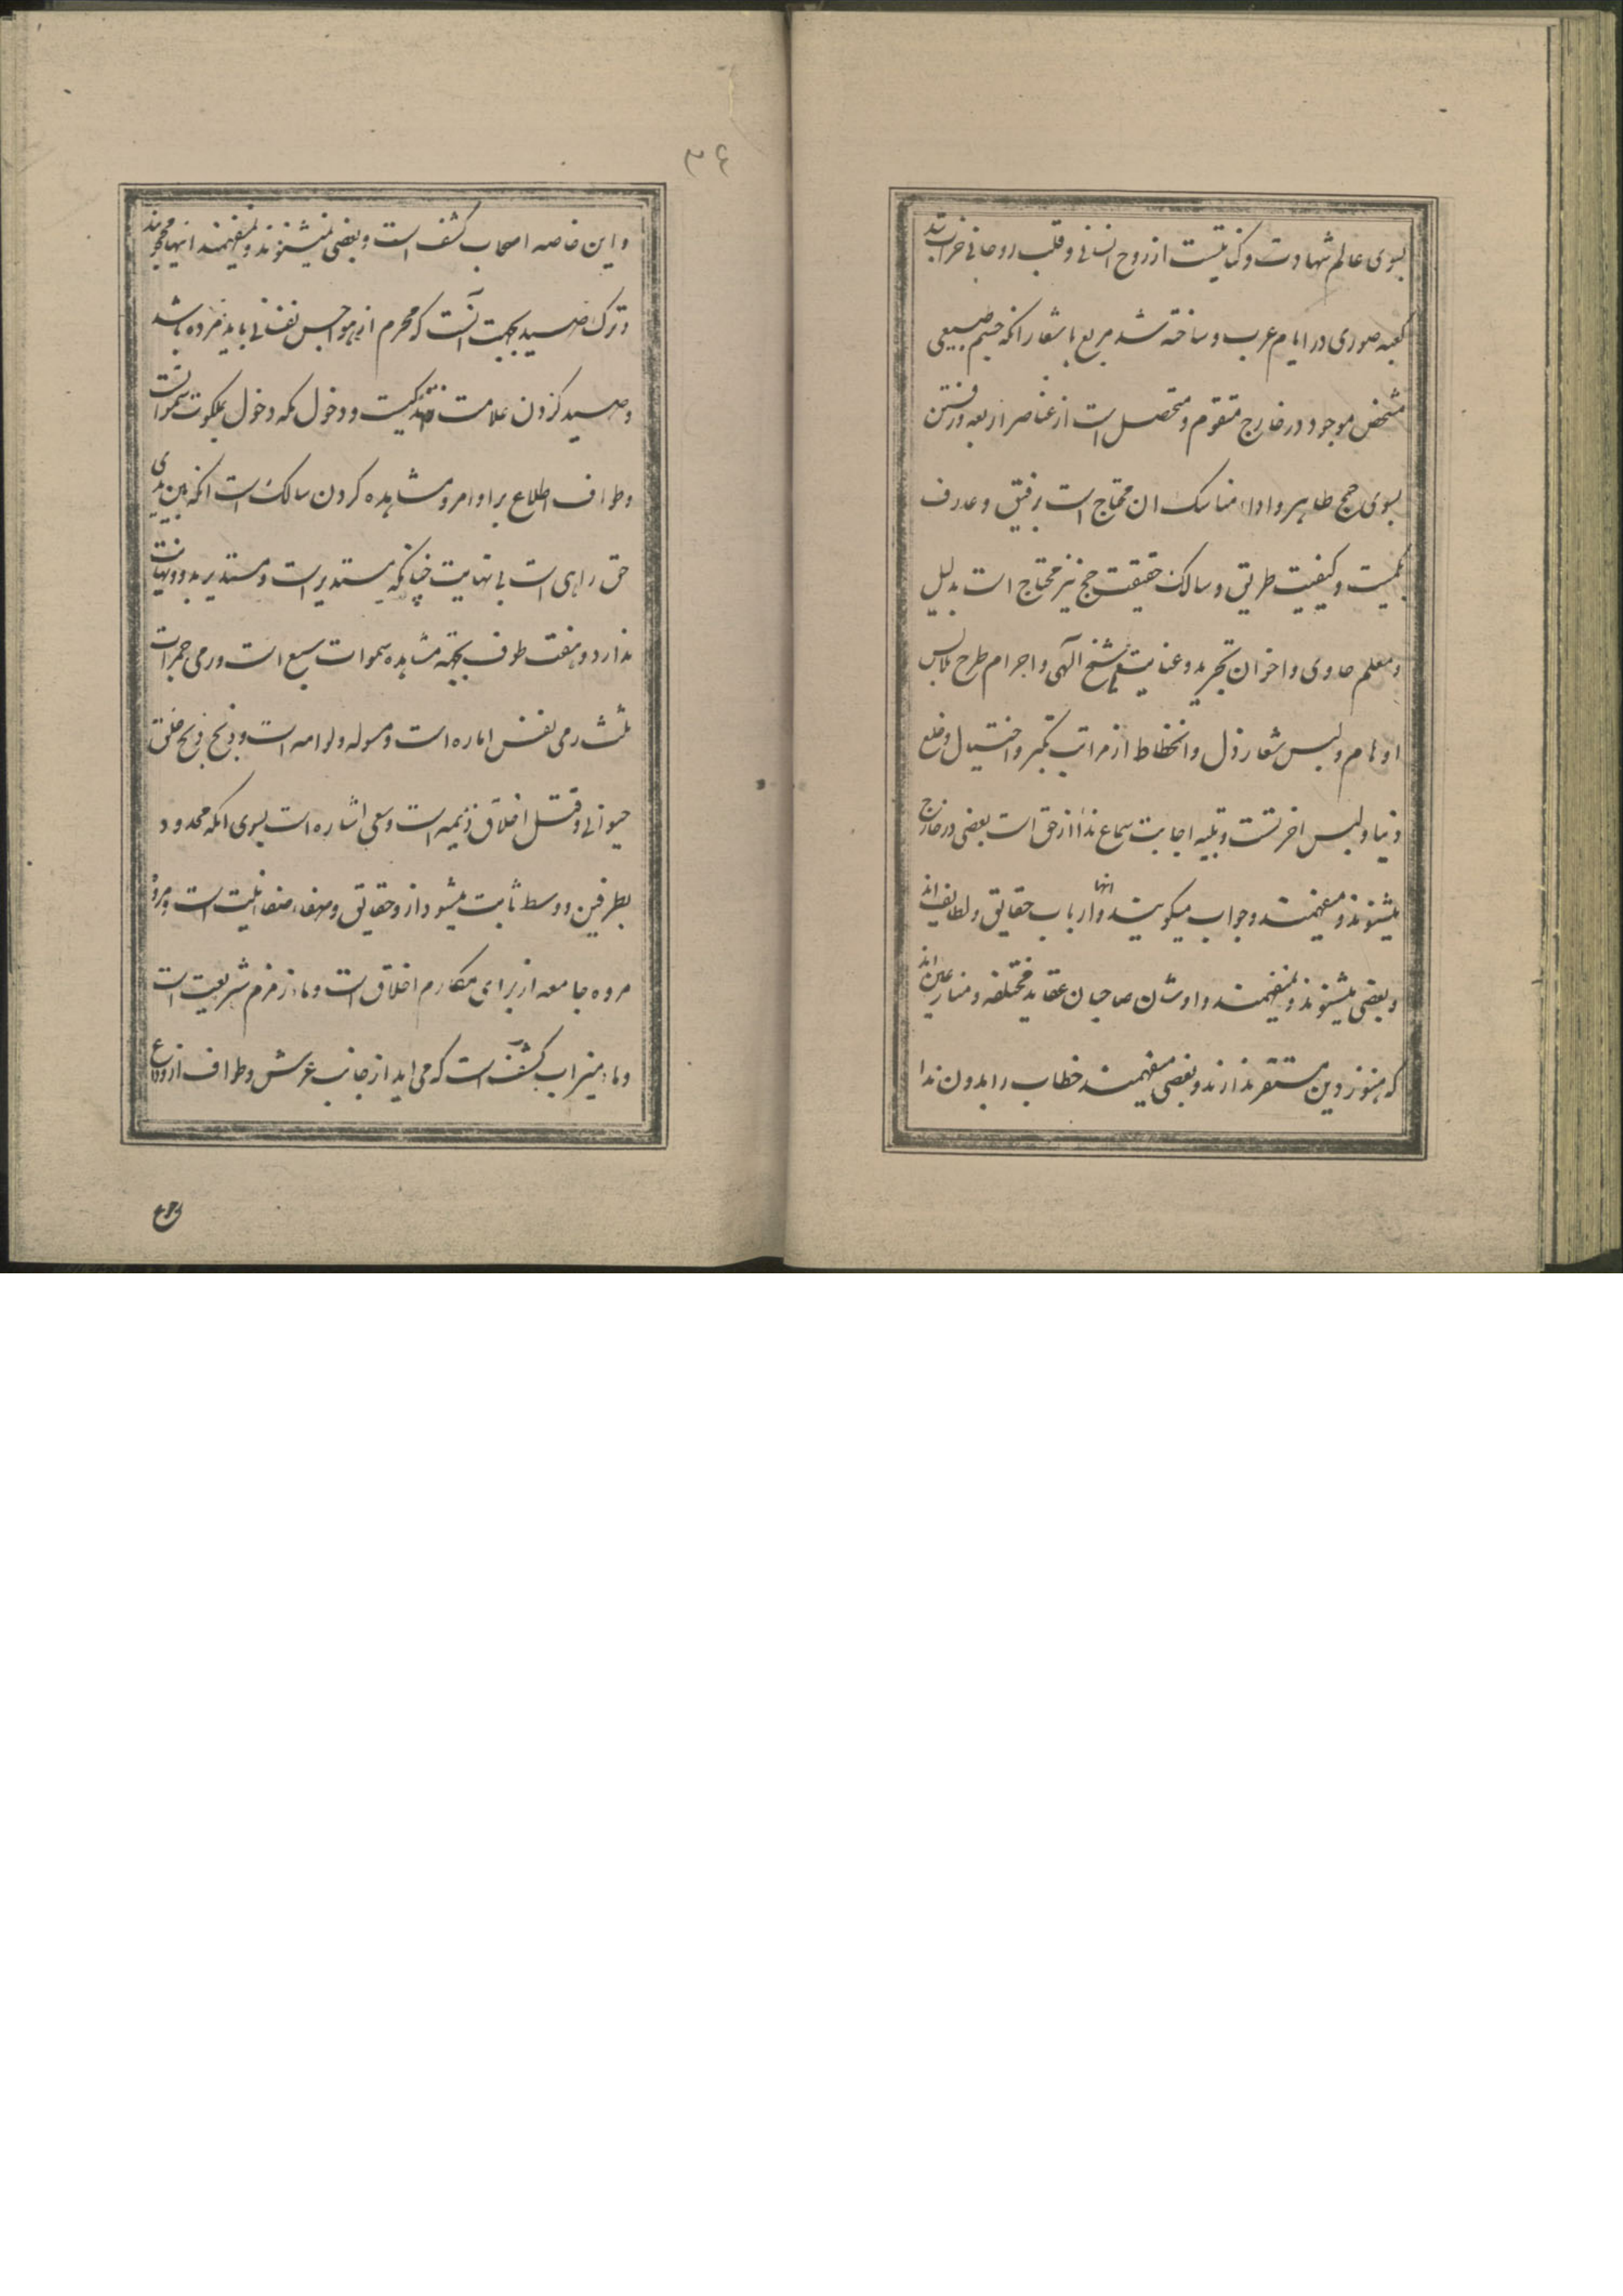 بسوی عالم شهادت و کنایتست از روح انسانی و قلب روحانی خراب شد
کعبه صوری در ایام عرب و ساخته شد مربع باشعار انکه جسم طبیعی
مشخص موجود در خارج متقوم و متحصل است از عناصر اربعه و رفتن
بسوی حج ظاهر و اداء مناسک ان محتاج است برفیق و عارف
بکمیت و کیفیت طریق و سالک حقیقت حج نیز محتاج است بدلیل
و معلم حاوی و اخوان تجرید و عنایت شیخ الهی و احرام طرح لباس
اوهام و لبس شعار ذل و انحطاط از مراتب تکبر و اختیال و خلع
دنیا و لبس اخرتست و تلبیه اجابت سماع ندا از حق است بعضی در خارج
میشنوند و میفهمند و جواب میکویند و انها ارباب حقایق و لطایف اند
و بعضی میشنوند و نمیفهمند و اوشان صاحبان عقاید مختلفه و منازعین اند
که هنوز دین مستقر ندارند و بعضی میفهمند خطاب را بدون ندا
۳۶
و این خاصه اصحاب کشف است و بعضی نمیشنوند و نمیفهمند انها محجوبند
و ترک صید بجهت آنست که محرم از هواجس نفسانی باید مرده باشد
و صید کردن علامت زندکیست و دخول مکه دخول بملکوت سمواتست
و طواف اطلاع بر اوامر و مشاهده کردن سالک است انکه بین یدی
حق راهی است بی نهایت چنانکه مستدیر است و مستدیر بدو و نهایت
ندارد و هفت طوف بجهة مشاهده سموات سبع است و رمی جمرات
ثلث رمی نفس اماره است و مسوله و لوامه است و ذبح ذبح خلق
حیوانی و قتل اخلاق ذمیمه است و سعی اشاره است بسوی انکه محدود
بطرفین و وسط ثابت میشود از و حقایق و صفاء صفا نیت است و مروه
مروه جامعه از برای مکارم اخلاق است و ماء زمزم شریعت است
و ماء میزاب کشف است که می اید از جانب عرش و طواف از وداع